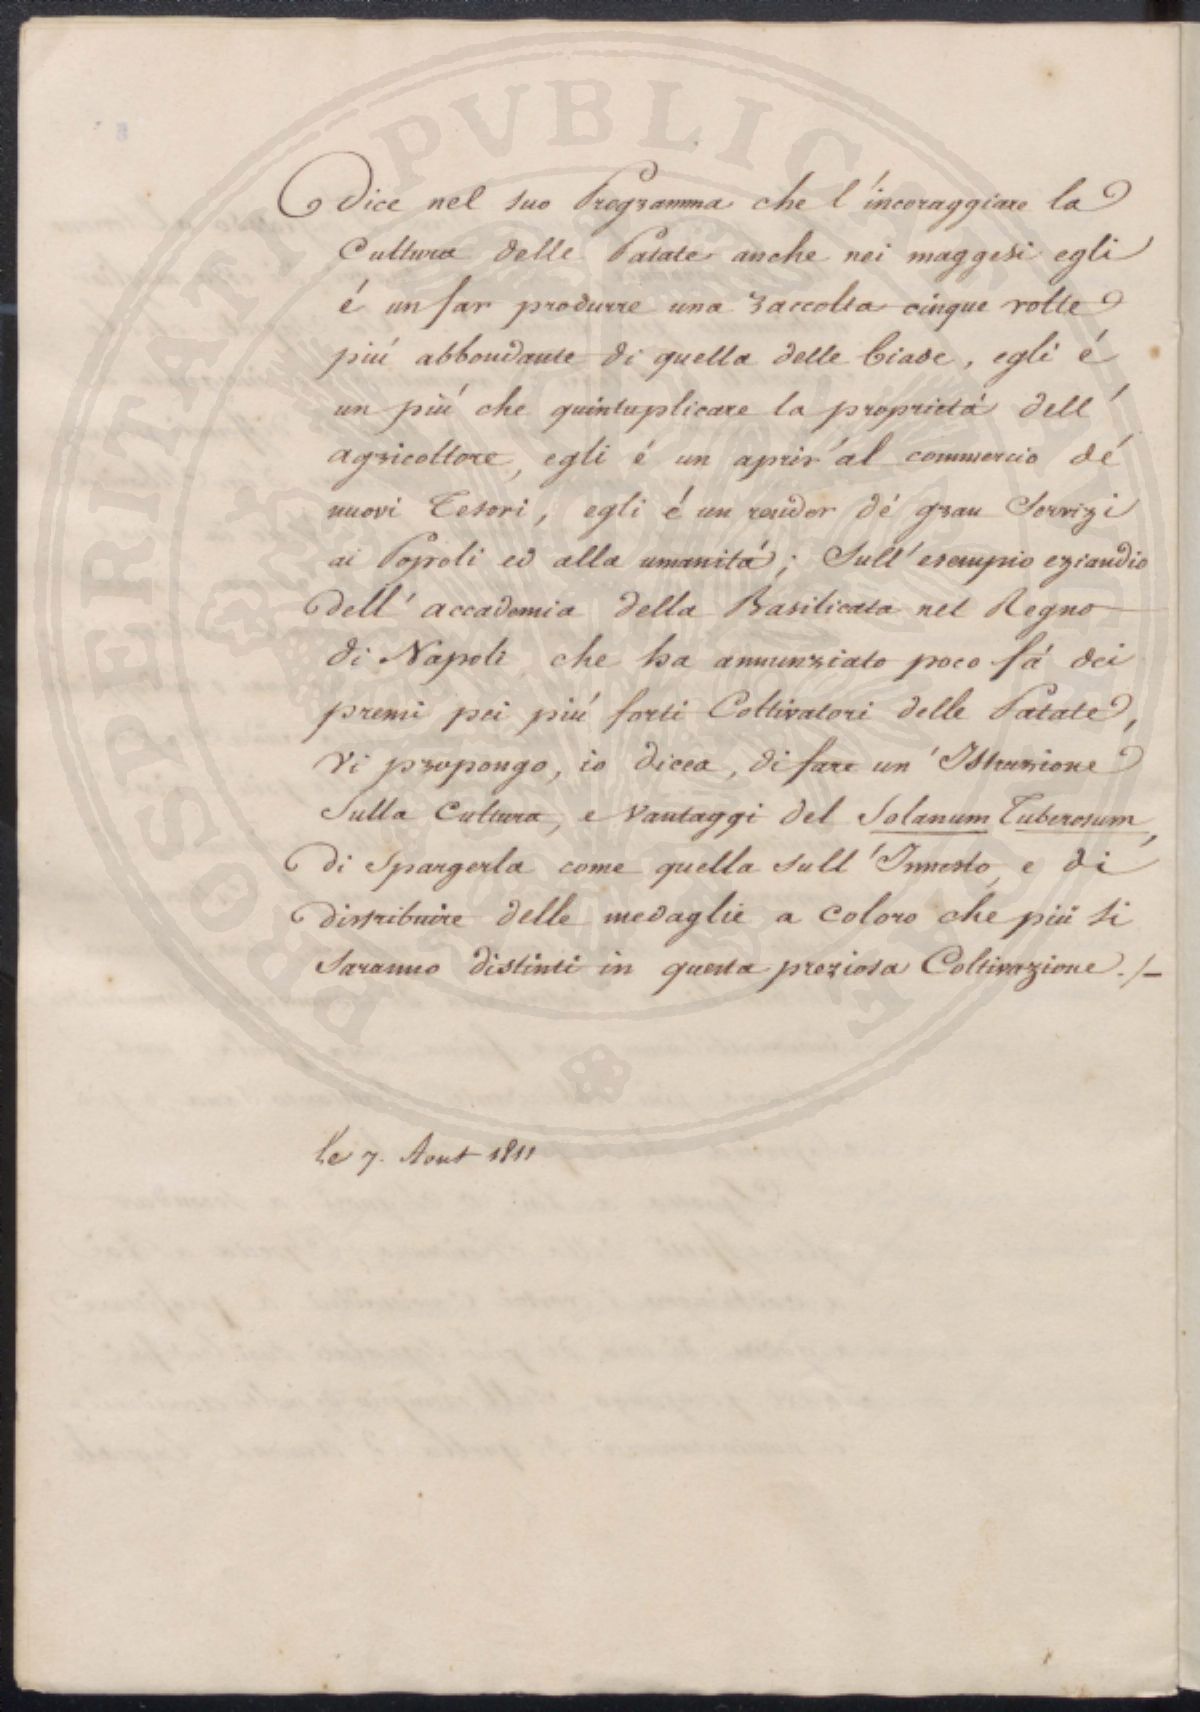 Dice nel suo Programma che l'incoraggiare la
Cultura delle Patate anche nei maggesi egli
é un far produrre una raccolta cinque volte
piú abbondante di quella delle biade, egli é
un piú che quintuplicare la proprietá dell'
agricoltore, egli é un aprir'al commercio dé
nuovi Tesori, egli é un render dé gran Servizi
ai Popoli ed alla umanitá; Sull'esempio eziandio
dell'accademia della Basilicata nel Regno
di Napoli che ha annunziato poco fá dei
premi pei piú forti Coltivatori delle Patate,
vi propongo, io dicea, di fare un'Istruzione
sulla Cultura, e vantaggi del Solanum Tuberosum,
di Spargerla come quella sull'Innesto, e di
distribuire delle medaglie a coloro che piú si
saranno distinti in questa preziosa Coltivazione ./–
Le 7. Aout 1811
PROSPERITATI PVBLICAE AVGENDAE